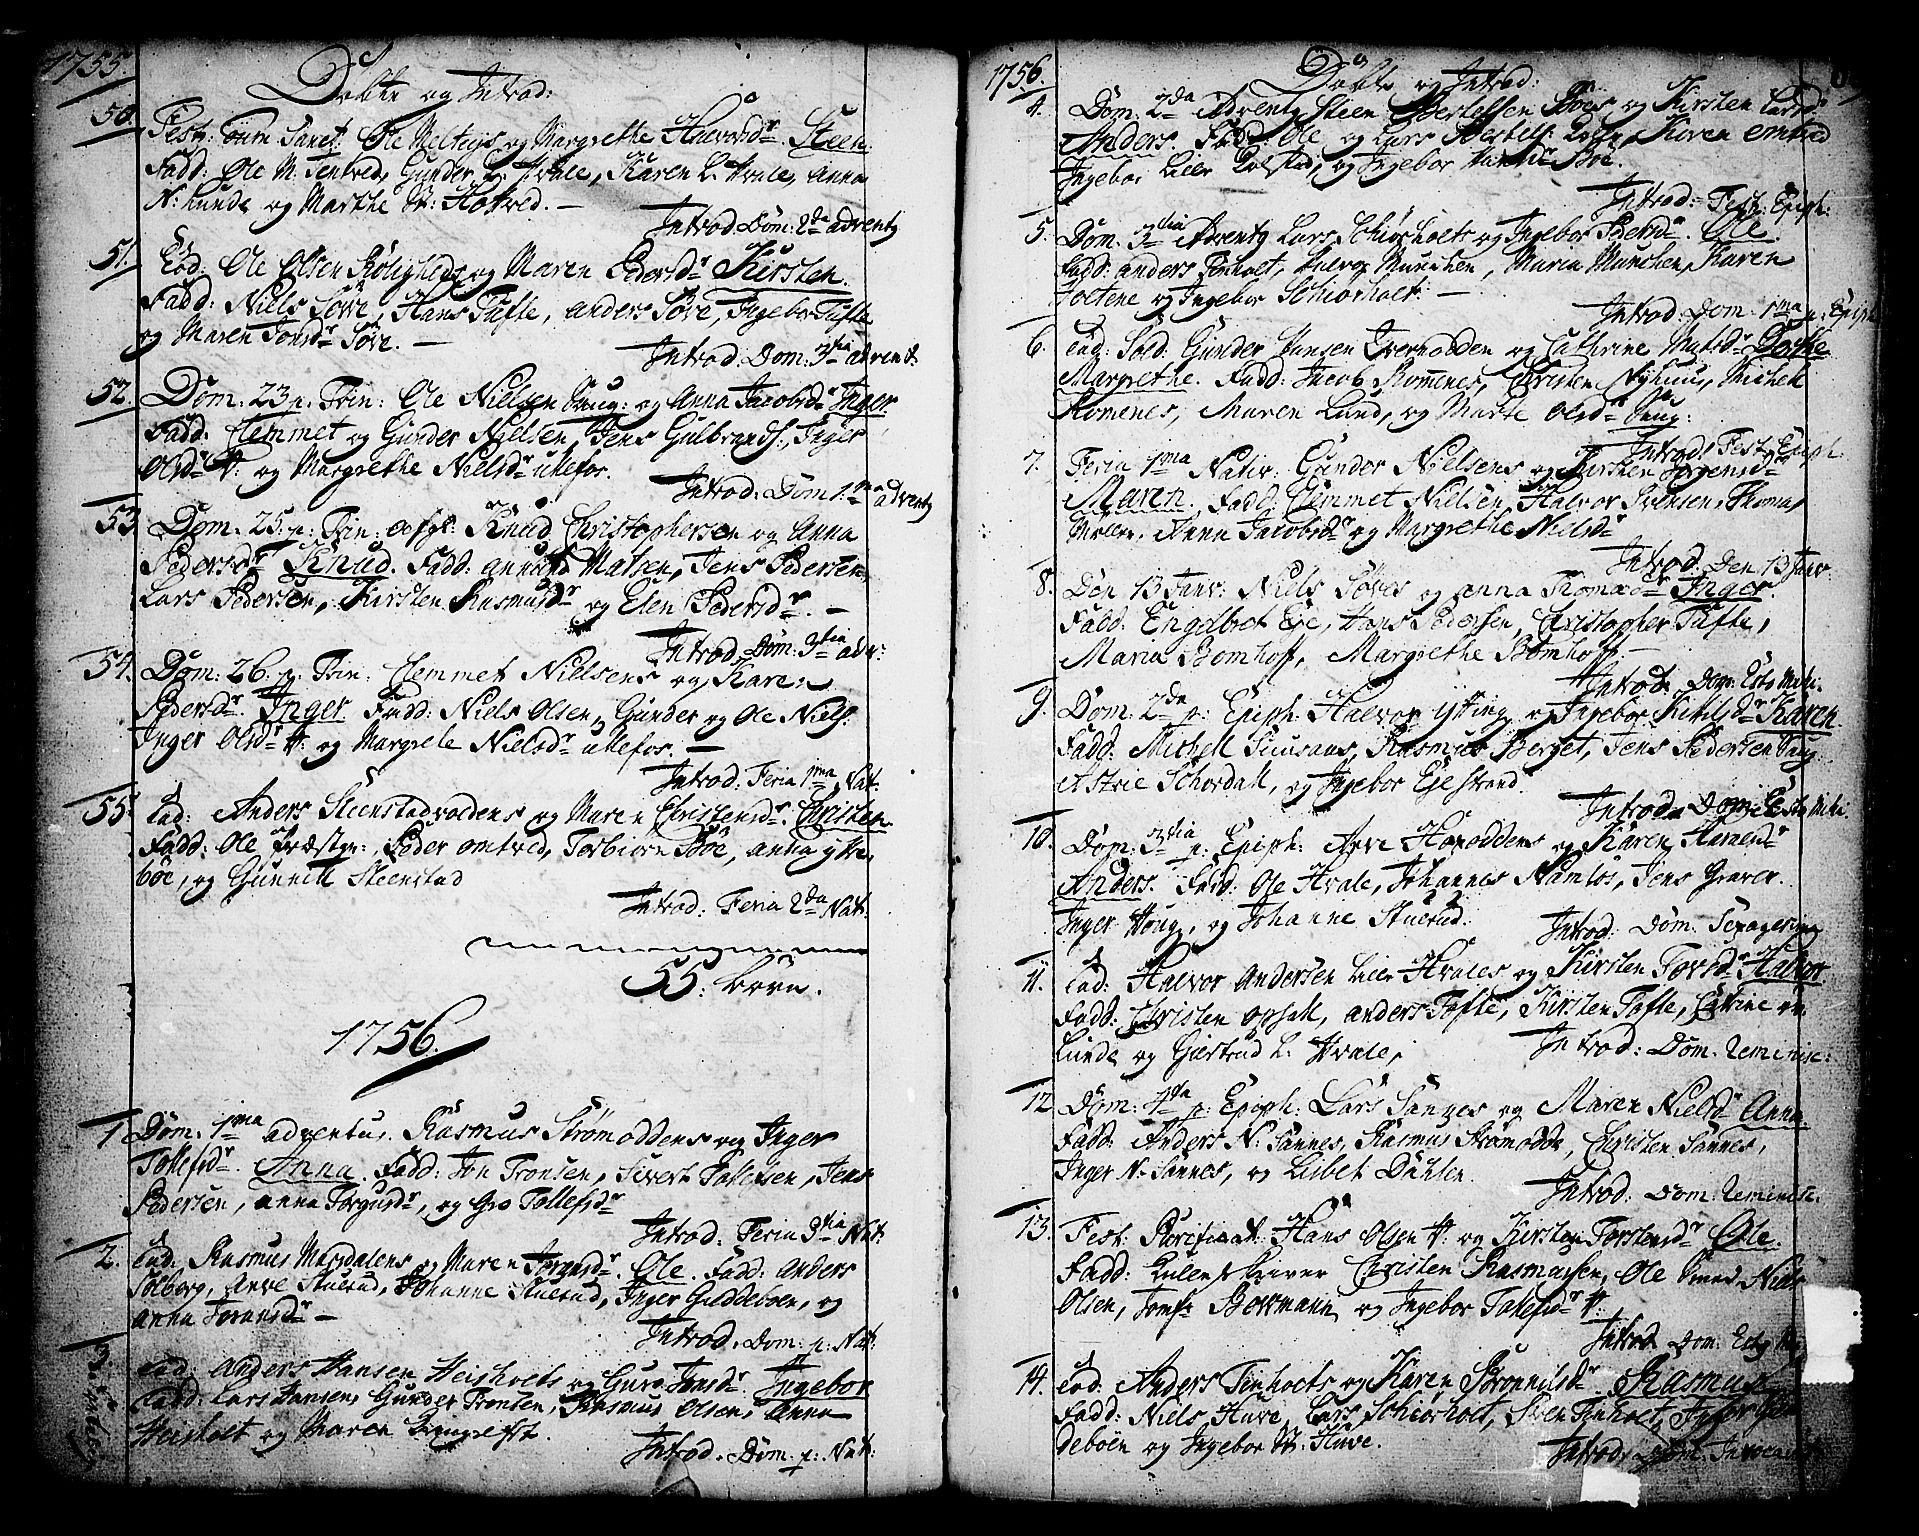 1755.
Døbte og Introd:
50. Fest: Omn Sanct: Ole Melteys og Margrethe Halvorsdr. Steen.
Fadd: Ole M. Tentved, Gunder L. Hvale, Karen L. Hvale, Anna
N: Lunde og Marthe St: Hotved. —
Introd: Dom: 2da adventq
51. Eod: Ole Olsen Roligheds og Maren Pedersdr Kirsten.
Fadd: Niels Søve, Hans Tufte, anders Søve, Ingebor Tufte
og Maren Tonsdr Søve. —
Introd: Dom: 3tia advent.
52. Dom: 23 p. Trin: Ole Nielsen Haug: og Anna Jacobsdr Inger
Fadd: Clemmet og Gunder Nielsen, Jens Gulbrands:, Inger
Olsdr H: og Margrethe Nielsdr Ullefos.
Introd: Dom 1ma adventq
53. Dom. 25. p: Trin: Knud Christophersen og Anna
Pedersdr Knud. Fadd: Matsen, Jens Pedersen,
Lars Pedersen, Kirsten Rasmusdr og Elen Pedersdr. —
Introd: Dom: 3tia adv:
54. Dom: 26. p. Trin: Clemmet Nielsens og Karen
Pedersdr. Inger Fadd: Niels Olsen, Gunder og Ole Niels:
Inger Olsdr H: og Margrete Nielsdr Ullefos. —
Introd: Feria 1ma Nat.
55. Eod: Anders Steenstadvoldens og Maren Christensdr. Christen.
Fadd: Ole Præstgr: Peder omtved, Torbiørn Bøe, anna ytre
bøe, og Gunnild Steenstad
Introd: Feria 2da Nat.
55. børn.
1756.
1 Dom. 1ma adventus. Rasmus Strømoddens og Inger
Tollefsdr. Anna. Fadd: Jon Tronsen, Sivert Tollefsen, Jens
Pedersen, anna Torgursdr, og Gro Tollefsdr
Introd: Feria 3tia Nat:
2. Eod: Rasmus Marsdalens og Maren Torgursdr. Ole. Fadd: Anders
Solberg, Arve Stuerud, Johanne Stuerud, Inger Guddeboen, og
anna dr —
Introd. Dom. p: Nat:
3. Eod: Anders Hansen Heisholts og Guro Jonsdr. Ingebor
Fadd: Lars Hansen, Gunder Tronsen, Rasmus Olsen, Anna
Heisholt og Maren
Introd: Dom. p: Nat:
1756.
Døbte og Introd:
4. Dom: 2da Adventq Steen Bertelsen Bøes og Kirsten Larsdr
Anders. Fadd: Ole og Lars Bertels: Karen omtved
Ingebor Lille Dolstad, og Ingebor Bøe.
Introd: Fest: Epiph:
5. Dom. 3tia Adventq Lars Schiorholts og Ingebor Pedersdr. Ole.
Fadd: anders Tinholt, Halvor Munchen, Maria Munchen, Karen
Holtene og Ingebor Schiorholt: —
Introd: Dom. 1ma p. Epiph
6. Eod: Sold: Gunder Hansen Tverrodden og Cathrine Matsdr Dorthe
Margrethe. Fadd: Jacob Romenes, Christen Nyhuus, Michel
Romenes, Maren Lund, og Marte Olsdr Haug:
Introd: Fest: Epiph:
7. Feria 1ma Nativ: Gunder Nielsens og Kirsten Jørgensdr
Maren. Fadd: Clemmet Nielsen, Halvor Svensen, Thomas
Møller, Anna Jacobsdr og Margrethe Nielsdr
Introd. Den 13 Janr.
8. Den 13 Janr: Niels Søves og Anna Thomædr Inger.
Fadd: Engelbret Eie, Hans Pedersen, Christopher Tufte,
Maria Bomhoff, Margrethe Bomhoff —
Introd Dom: Esto Mihi.
9. Dom: 2da p: Epiph: Halvor Ytting og Ingebor Kittilsdr Karen
Fadd: Michel, Rasmus Berget, Jens Pedersen Haug
Astrie Schordall, og Ingebor Ejestrand.
Introd. Dom: Esto Mihi.
10. Dom: 3tia p: Epiph: Arve Horoddens og Karen Hansdr
Anders. Fadd: Ole Hvale, Johannes Namløs, Jens Graver
Inger Houg, og Johanne Stuerud.
Introd: Dom: Sexagesima
11. Eod: Halvor Andersen Lille Hvales og Kirsten Tovsdr Halvor
Fadd: Christen opsal, anders Tofte, Kirsten Tofte, Catrine
Lunde og Giertrud L. Hvale.
Introd: Dom. Reminisc:
12 Dom: 4da p: Epiph: Lars Sannes og Maren Nielsdr Anna
Fadd: Anders N: Sannes, Rasmus Strømodde, Christen Sannes,
Inger N: Sannes, og Lisbet Dahlen.
Introd: Dom: Reminisc.
13. Fest: Purificat: Hans Olsen H: og Kirsten Torstensdr Ole.
Fadd: Christen Rasmusen, Ole Smed, Niels
Olsen, Jomfr: Borkmann og Ingebor Tollefsdr H:
Introd Dom: Esto
14. Eod: Anders Tinholts og Karen Rasmus
Fadd: Niels Huve, Lars Schiorholt, Sven Tinholt, Inger
deboen og Ingebor N: Huve.
Introd: Dom: Invocavit